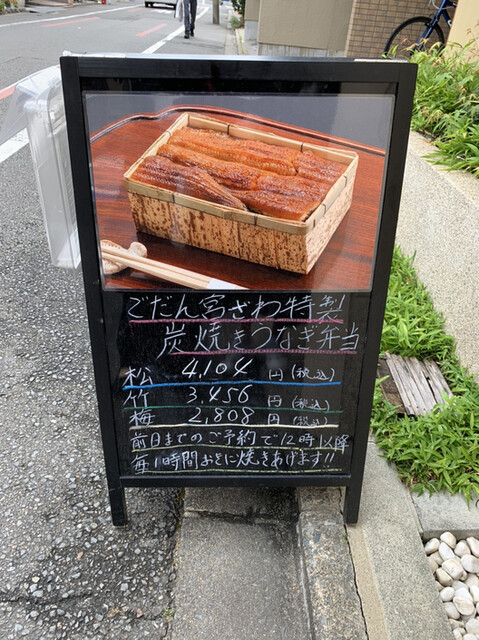 ごだん宮ざわ特製
炭焼きうなぎ弁当
松 4,104 円(税込)
竹 3,456 円(税込)
梅 2,808 円(税込)
前日までのご予約で12時以降
毎1時間おきに焼きあげます!!